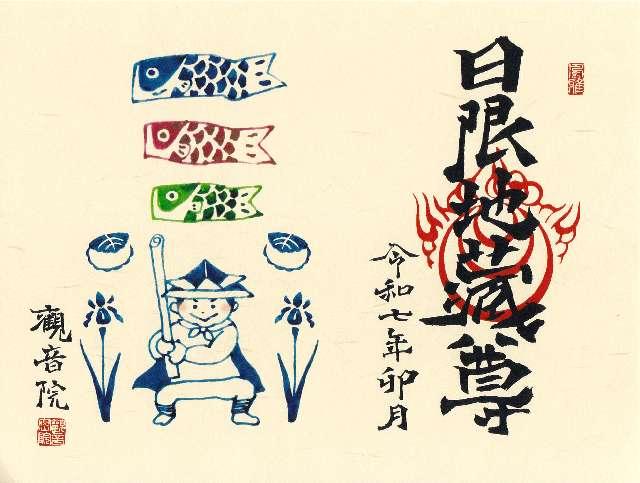 日限地蔵尊
令和七年卯月
觀音院